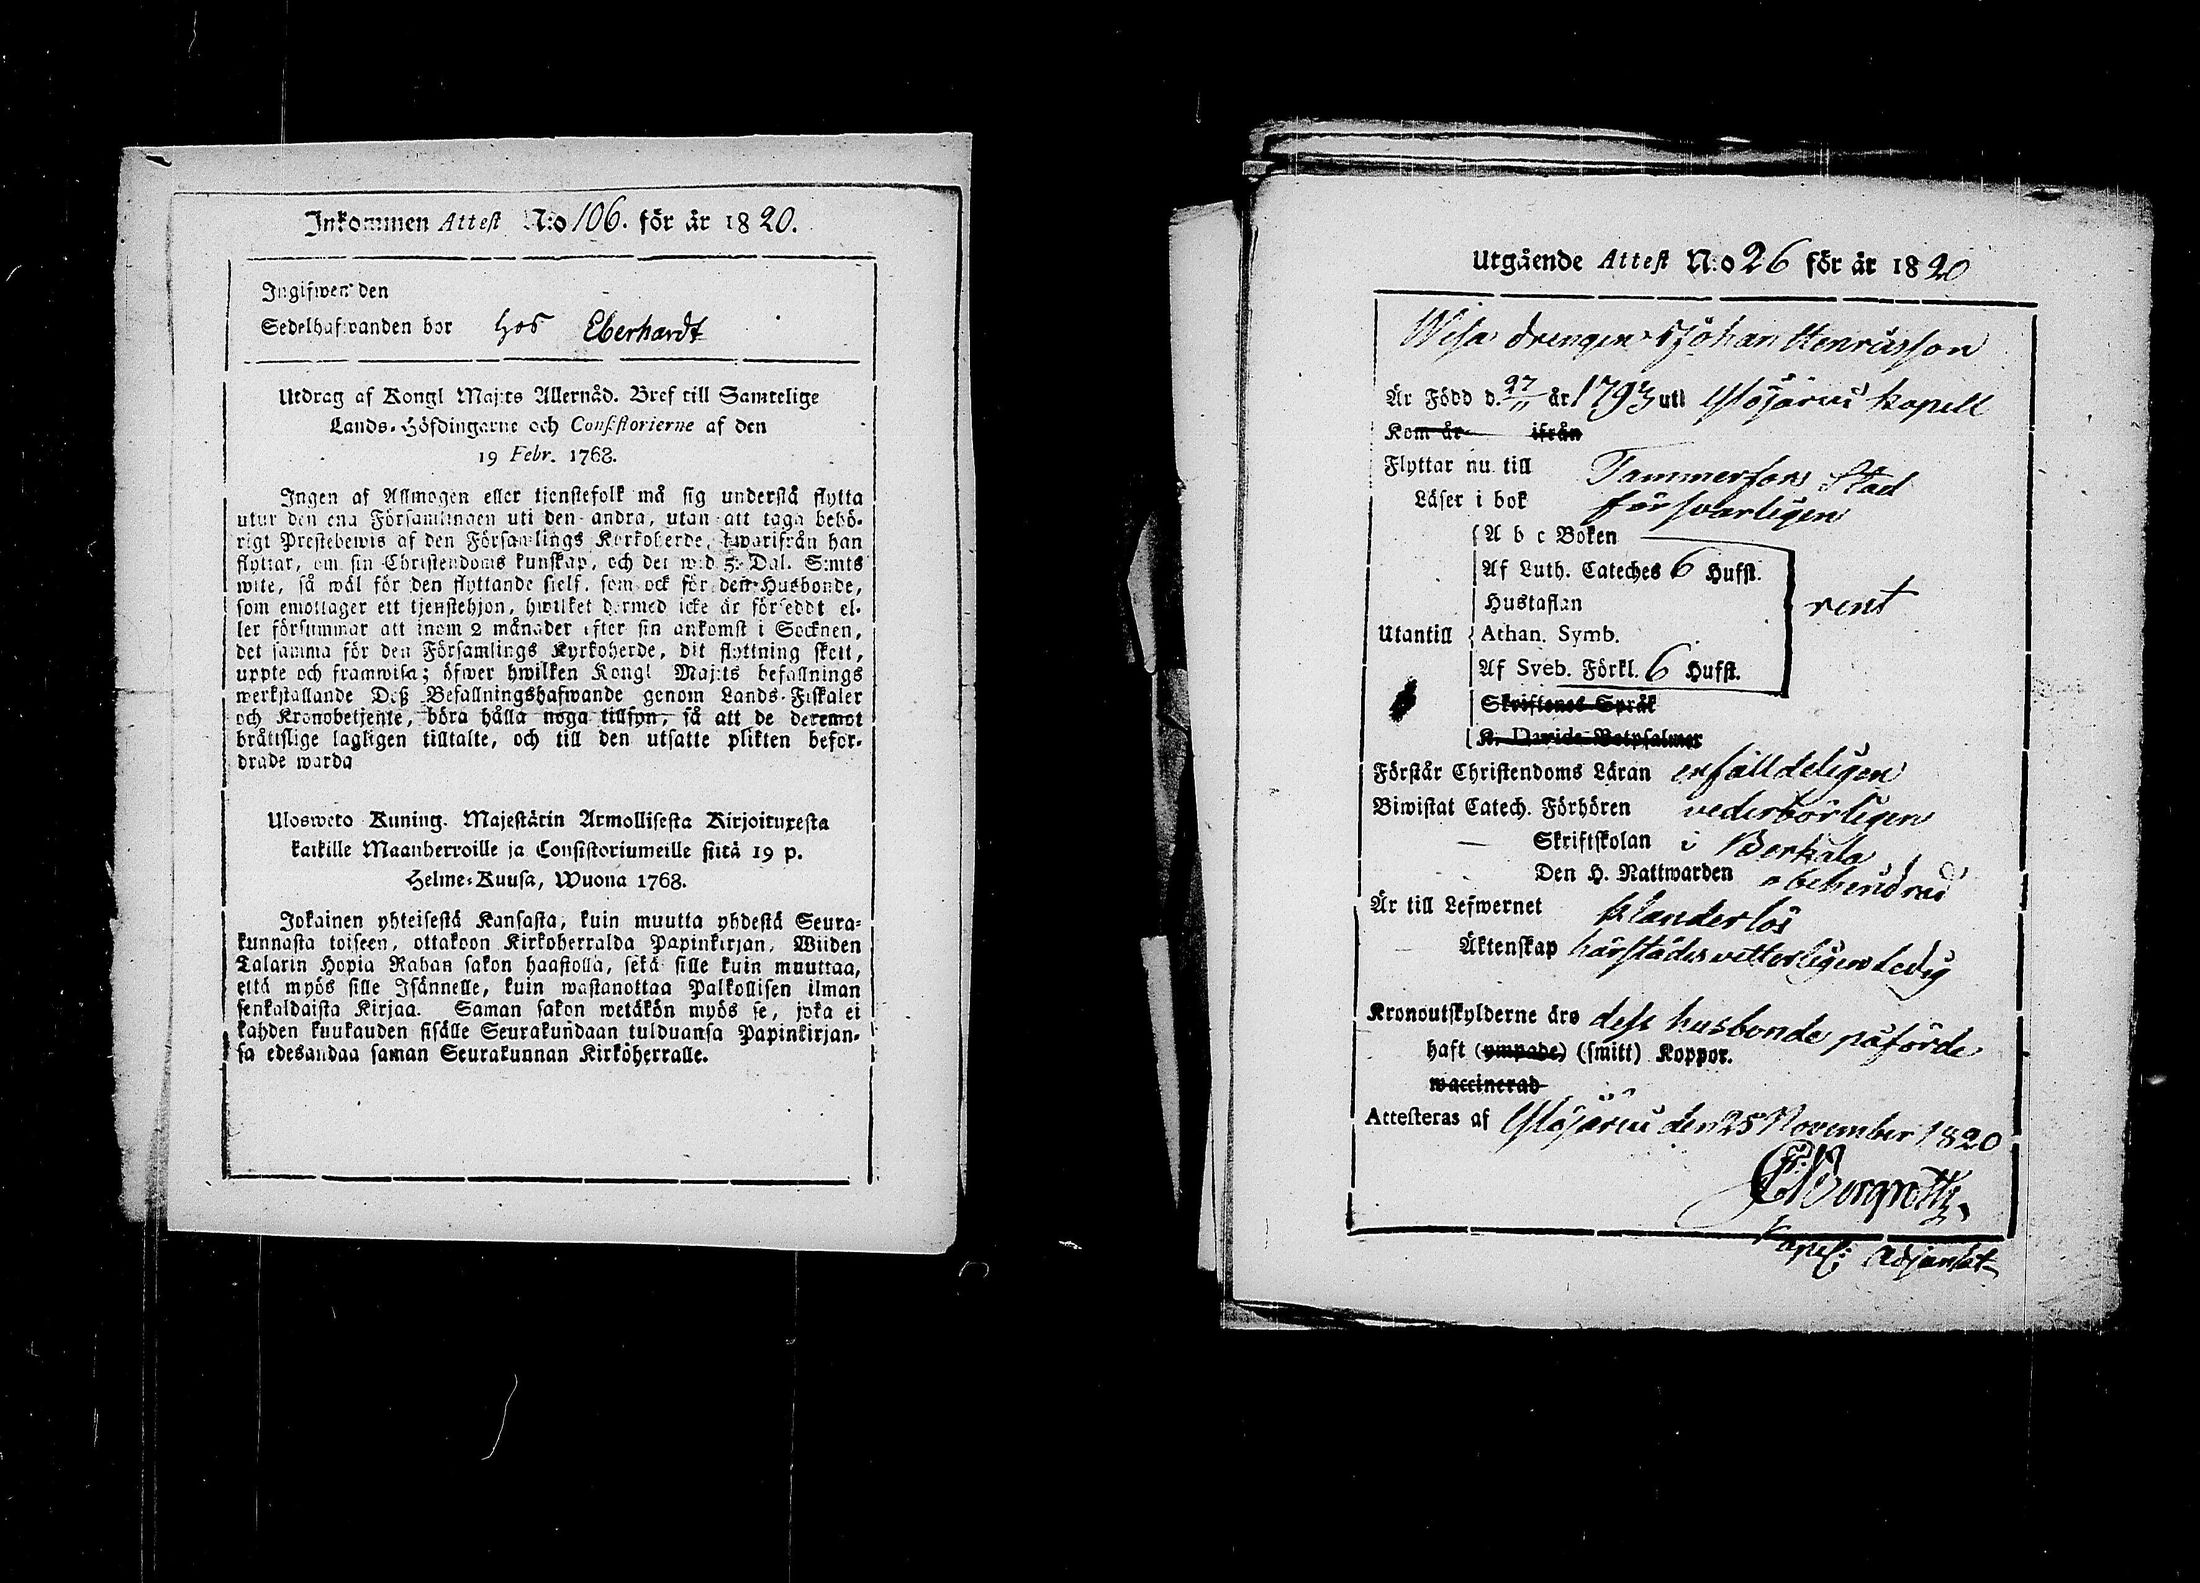 Inkommen Attest N:o 106. för år 1820.
Ingifwen den
Sedelhafwanden bor hos Eberhardt
Utdrag af Kongl Maj:ts Allernåd. Bref till Samtelige
Lands-Höfdingarne och Consistorierne af den
19 Febr. 1768.
Ingen af Allmogen eller tienstefolk må sig understå flytta
utur den ena Församlingen uti den andra, utan att taga behö-
rigt Prestebewis af den Församlings Kyrkoherde, hwarifrån han
flyttar, om sin Christendoms kunskap, och det wid 5 Dal. S:mts
wite, så wäl för den flyttande sielf, som ock för den Husbonde,
som emottager ett tjenstehjon, hwilket dermed icke är försedt el-
ler försummar att inom 2 månader efter sin ankomst i Socknen,
det samma för den Församlings Kyrkoherde, dit flyttning skett,
uppte och framwisa; öfwer hwilken Kongl Maj:ts befallnings
werkställande Deß Befallningshafwande genom Lands-Fiskaler
och Kronobetjente, böra hålla noga tillsyn, så att de deremot
bråttslige lagligen tilltalte, och till den utsatte plikten befor-
drade warda
Ulosweto Kuning. Majestätin Armollisesta Kirjoituxesta
kaikille Maanherroille ja Consistoriumeille siitä 19 p.
Helme-Kuusa, Wuona 1768.
Jokainen yhteisestä Kansasta, kuin muutta yhdestä Seura-
kunnasta toiseen, ottakoon Kirkoherralda Papinkirjan, Wiiden
Talarin Hopia Rahan sakon haastolla, sekä sille kuin muuttaa,
että myös sille Isännelle, kuin wastanottaa Palkollisen ilman
senkaldaista Kirjaa. Saman sakon wetäkön myös se, joka ei
kahden kuukauden sisälle Seurakundaan tulduansa Papinkirjan-
sa edesandaa saman Seurakunnan Kirköherralle.
Utgående Attest N:o 26 för år 1820
drengen Johan Henricsson
Är Född d. 27/11 år 1793 uti Ylöjärvi Kapell
Kom år ifrån
Flyttar nu till Tammerfors Stad
Läser i bok försvarligen
A b c Boken
Af Luth. Cateches 6 Hufst.
Hustaflan
rent
Utantill Athan. Symb.
Af Sveb. Förkl. 6 Hufst.
Skriftenes Språk
K. Davids Botpsalmer
Förstår Christendoms Läran enfaldeligen
Biwistat Catech. Förhören vederbörligen
— Skriftskolan i Berkala
Den H. Nattwarden obehindrad
Är till Lefwernet klanderlös
Äktenskap härstädes vetterligen Ledig
Kronoutskylderne äro dess husbonde påförde
haft (ympade) (smitt) Koppor.
waccinerad
Attesteras af Ylöjärvi den 25 November 1820
Kapell: Adjunkt